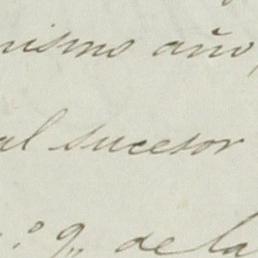 mismo año,
al sucesor
de la